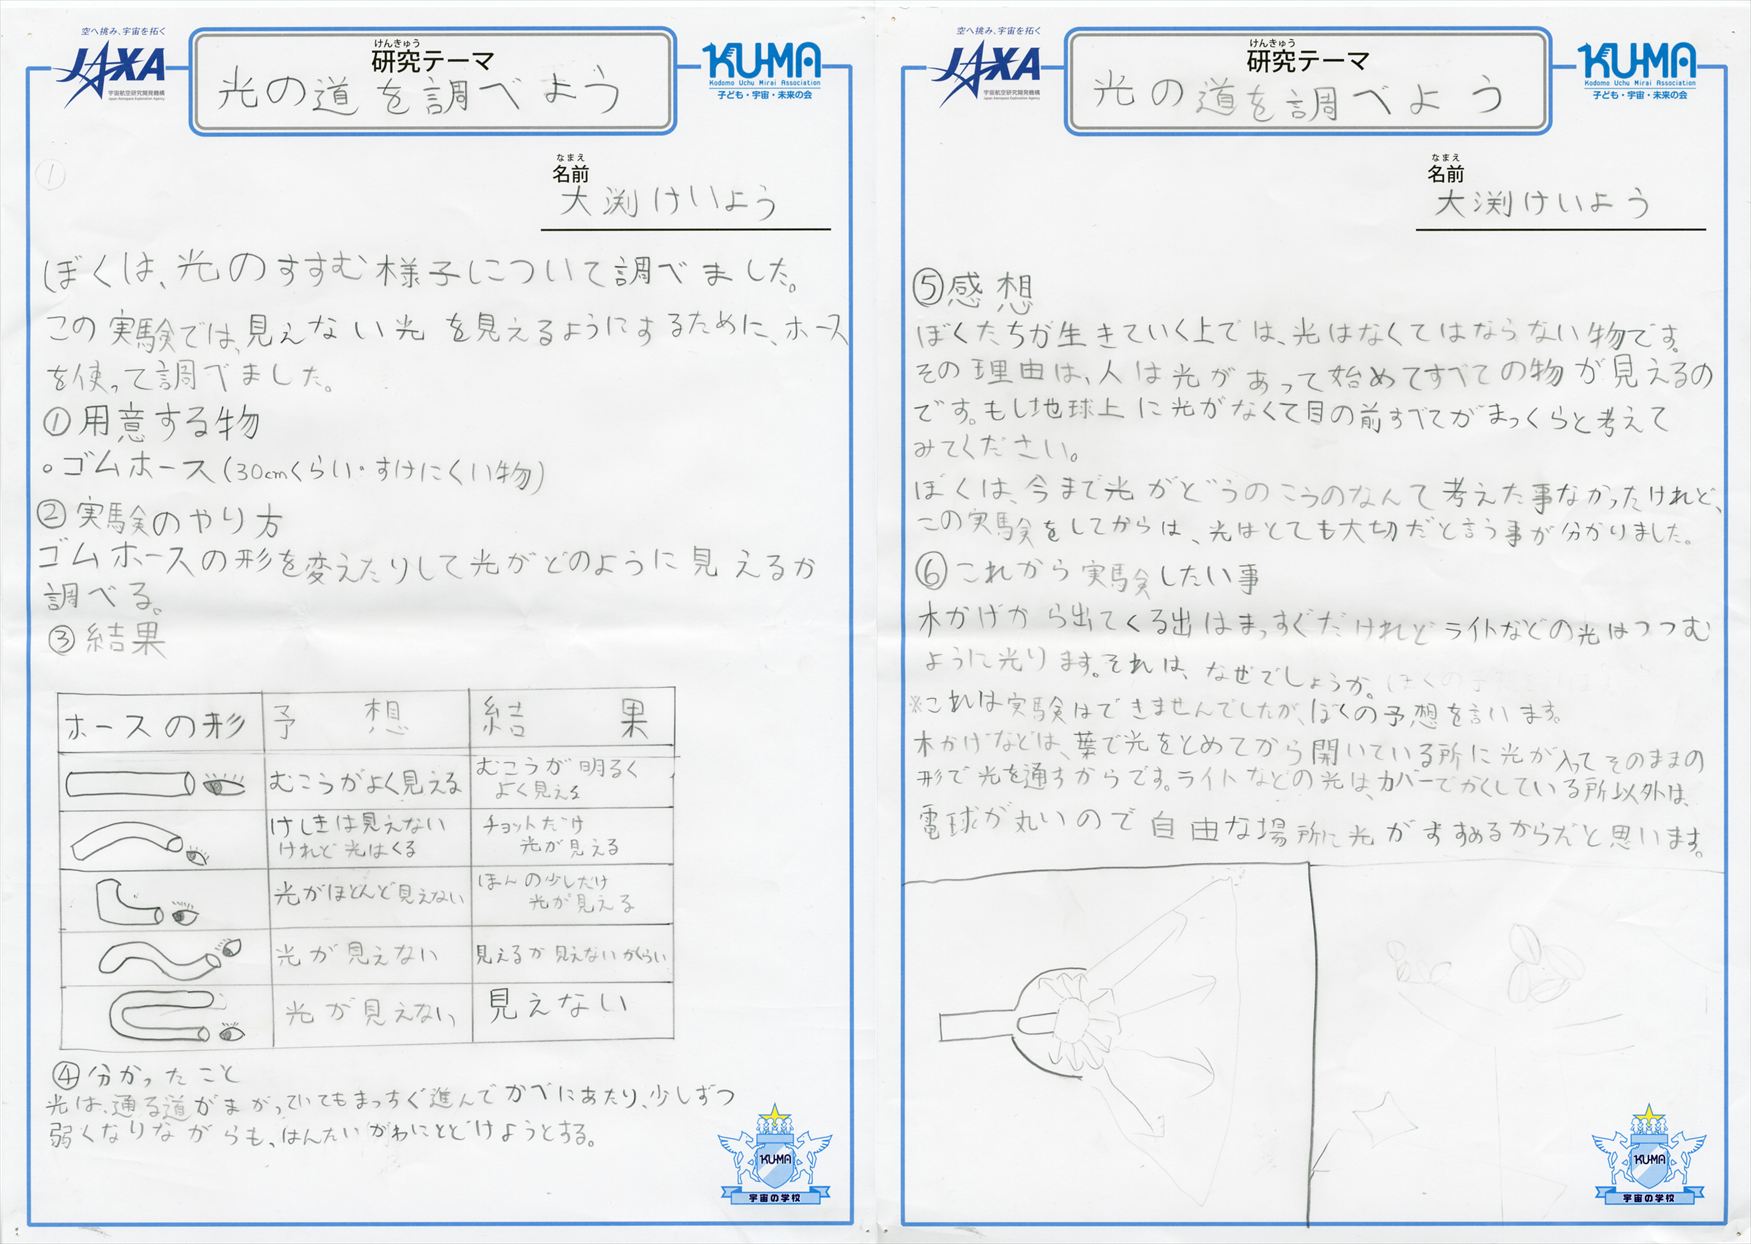 空へ挑み、宇宙を拓く
JAXA
宇宙航空研究開発機構
Japan Aerospace Exploration Agency
けんきゅう
研究テーマ
光の道を調べよう
KU-MA
Kodomo Uchu Mirai Association
子ども・宇宙・未来の会
①
なまえ
名前
大渕けいよう
ぼくは、光のすすむ様子について調べました。
この実験では、見えない光を見えるようにするために、ホース
を使って調べました。
①用意する物
○ゴムホース(30cmくらい・すけにくい物)
②実験のやり方
ゴムホースの形を変えたりして光がどのように見えるか
調べる。
③結果
ホースの形 予想 結果
むこうがよく見える
むこうが明るく
よく見える
けしきは見えない
けれど光はくる
チョットだけ
光が見える
光がほとんど見えない
ほんの少しだけ
光が見える
光が見えない
見えるか見えないかくらい
光が見えない
見えない
④分かったこと
光は、通る道がまがっていてもまっちぐ進んでかべにあたり、少しずつ
弱くなりながらも、はんたいがわにとどけようとする。
KU-MA
宇宙の学校
空へ挑み、宇宙を拓く
JAXA
宇宙航空研究開発機構
Japan Aerospace Exploration Agency
けんきゅう
研究テーマ
光の道を調べよう
KU-MA
Kodomo Uchu Mirai Association
子ども・宇宙・未来の会
なまえ
名前
大渕けいよう
⑤感想
ぼくたちが生きていく上では、光はなくてはならない物です。
その理由は、人は光があって始めてすべての物が見えるの
です。もし地球上に光がなくて目の前すべてがまっくらと考えて
みてください。
ぼくは、今まで光がどうのこうのなんて考えた事なかったけれど、
この実験をしてからは、光はとても大切だと言う事が分かりました。
⑥これから実験したい事
木かげから出てくる出はまっすぐだけれどライトなどの光はつつむ
ように光ります。それは、なぜでしょうか。
※これは実験はできませんでしたが、ぼくの予想を言います。
木かげなどは、葉で光をとめてから開いている所に光が入ってそのままの
形で光を通すからです。ライトなどの光は、カバーでかくしている所以外は、
電球が丸いので自由な場所に光がすすめるからだと思います。
KU-MA
宇宙の学校